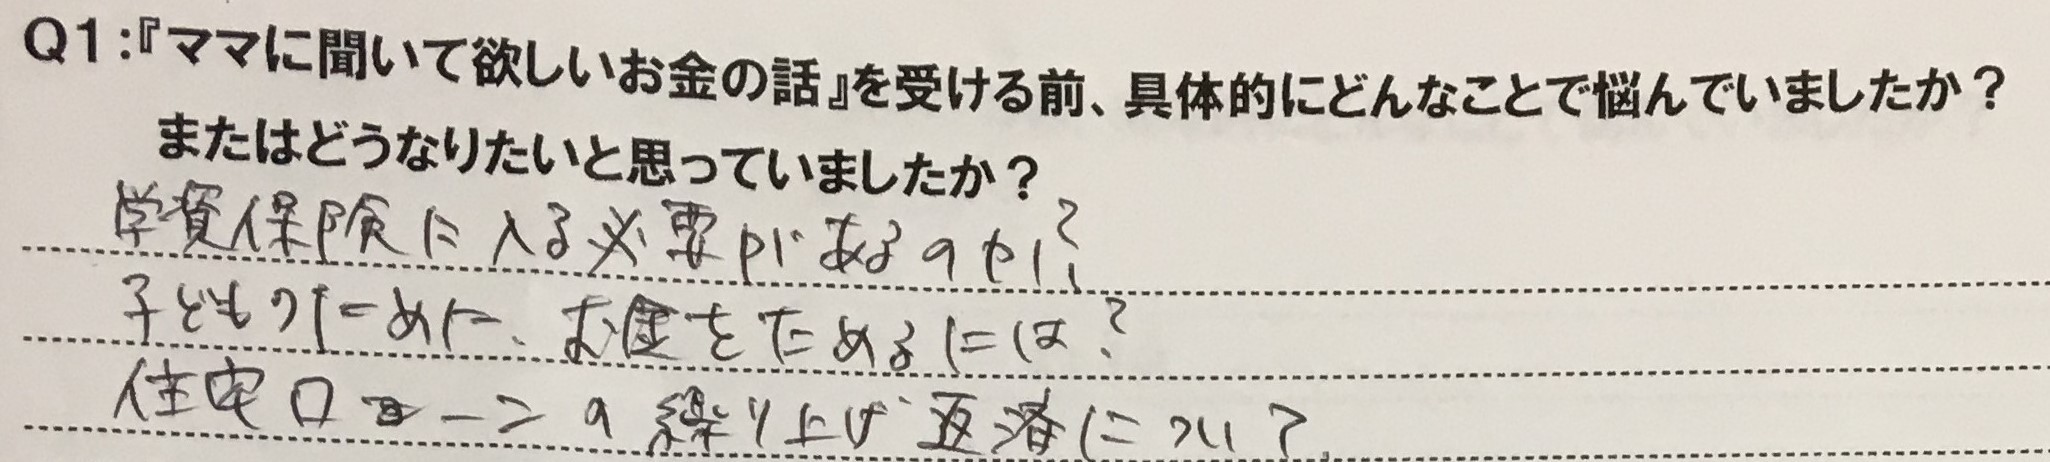 Q1:『ママに聞いて欲しいお金の話』を受ける前、具体的にどんなことで悩んでいましたか？
またはどうなりたいと思っていましたか？
学資保険に入る必要があるのか？
子どものために、お金をためるには？
住宅ローンの繰り上げ返済について。